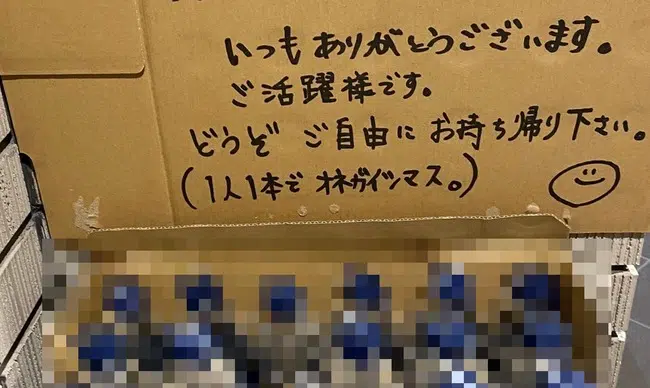 いつもありがとうございます。
ご活躍様です。
どうぞ ご自由に お持ち帰り下さい。
(1人1本で オネガイシマス。)